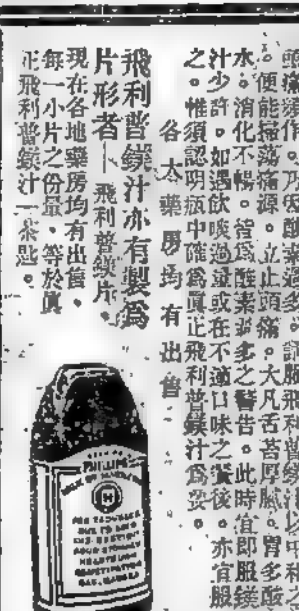 頭痛頻作。乃因酸素過多。請服飛利普鎂汁以中和之
。便能掃蕩痛源。立止頭痛。大凡舌苔厚膩。胃多酸
水。消化不暢。皆爲酸素過多之警告。此時宜即服鎂
汁少許。如遇飲喫過量或在不適口味之餐後。亦宜服
之。惟須認明瓶中確爲眞正飛利普鎂汁爲妥。
各大藥房均有出售
飛利普鎂汁亦有製爲
片形者—飛利普鎂片。
現在各地藥房均有出售。
每一小片之份量。等於眞
正飛利普鎂汁一茶匙。
PHILLIPS'
MILK OF MAGNESIA